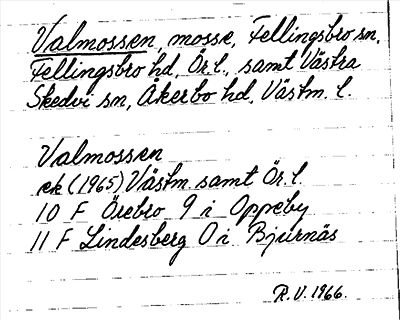 Valmossen, mosse, Fellingsbro sn,
Fellingsbro hd, Ör. l., samt Västra
Skedvi sn, Åkerbo hd, Västm. l.
Valmossen
ek (1965) Västm. samt Ör. l.
10 F Örebro 9 i Oppeby
11 F Lindesberg 0 i Bjurnäs
R.V. 1966.